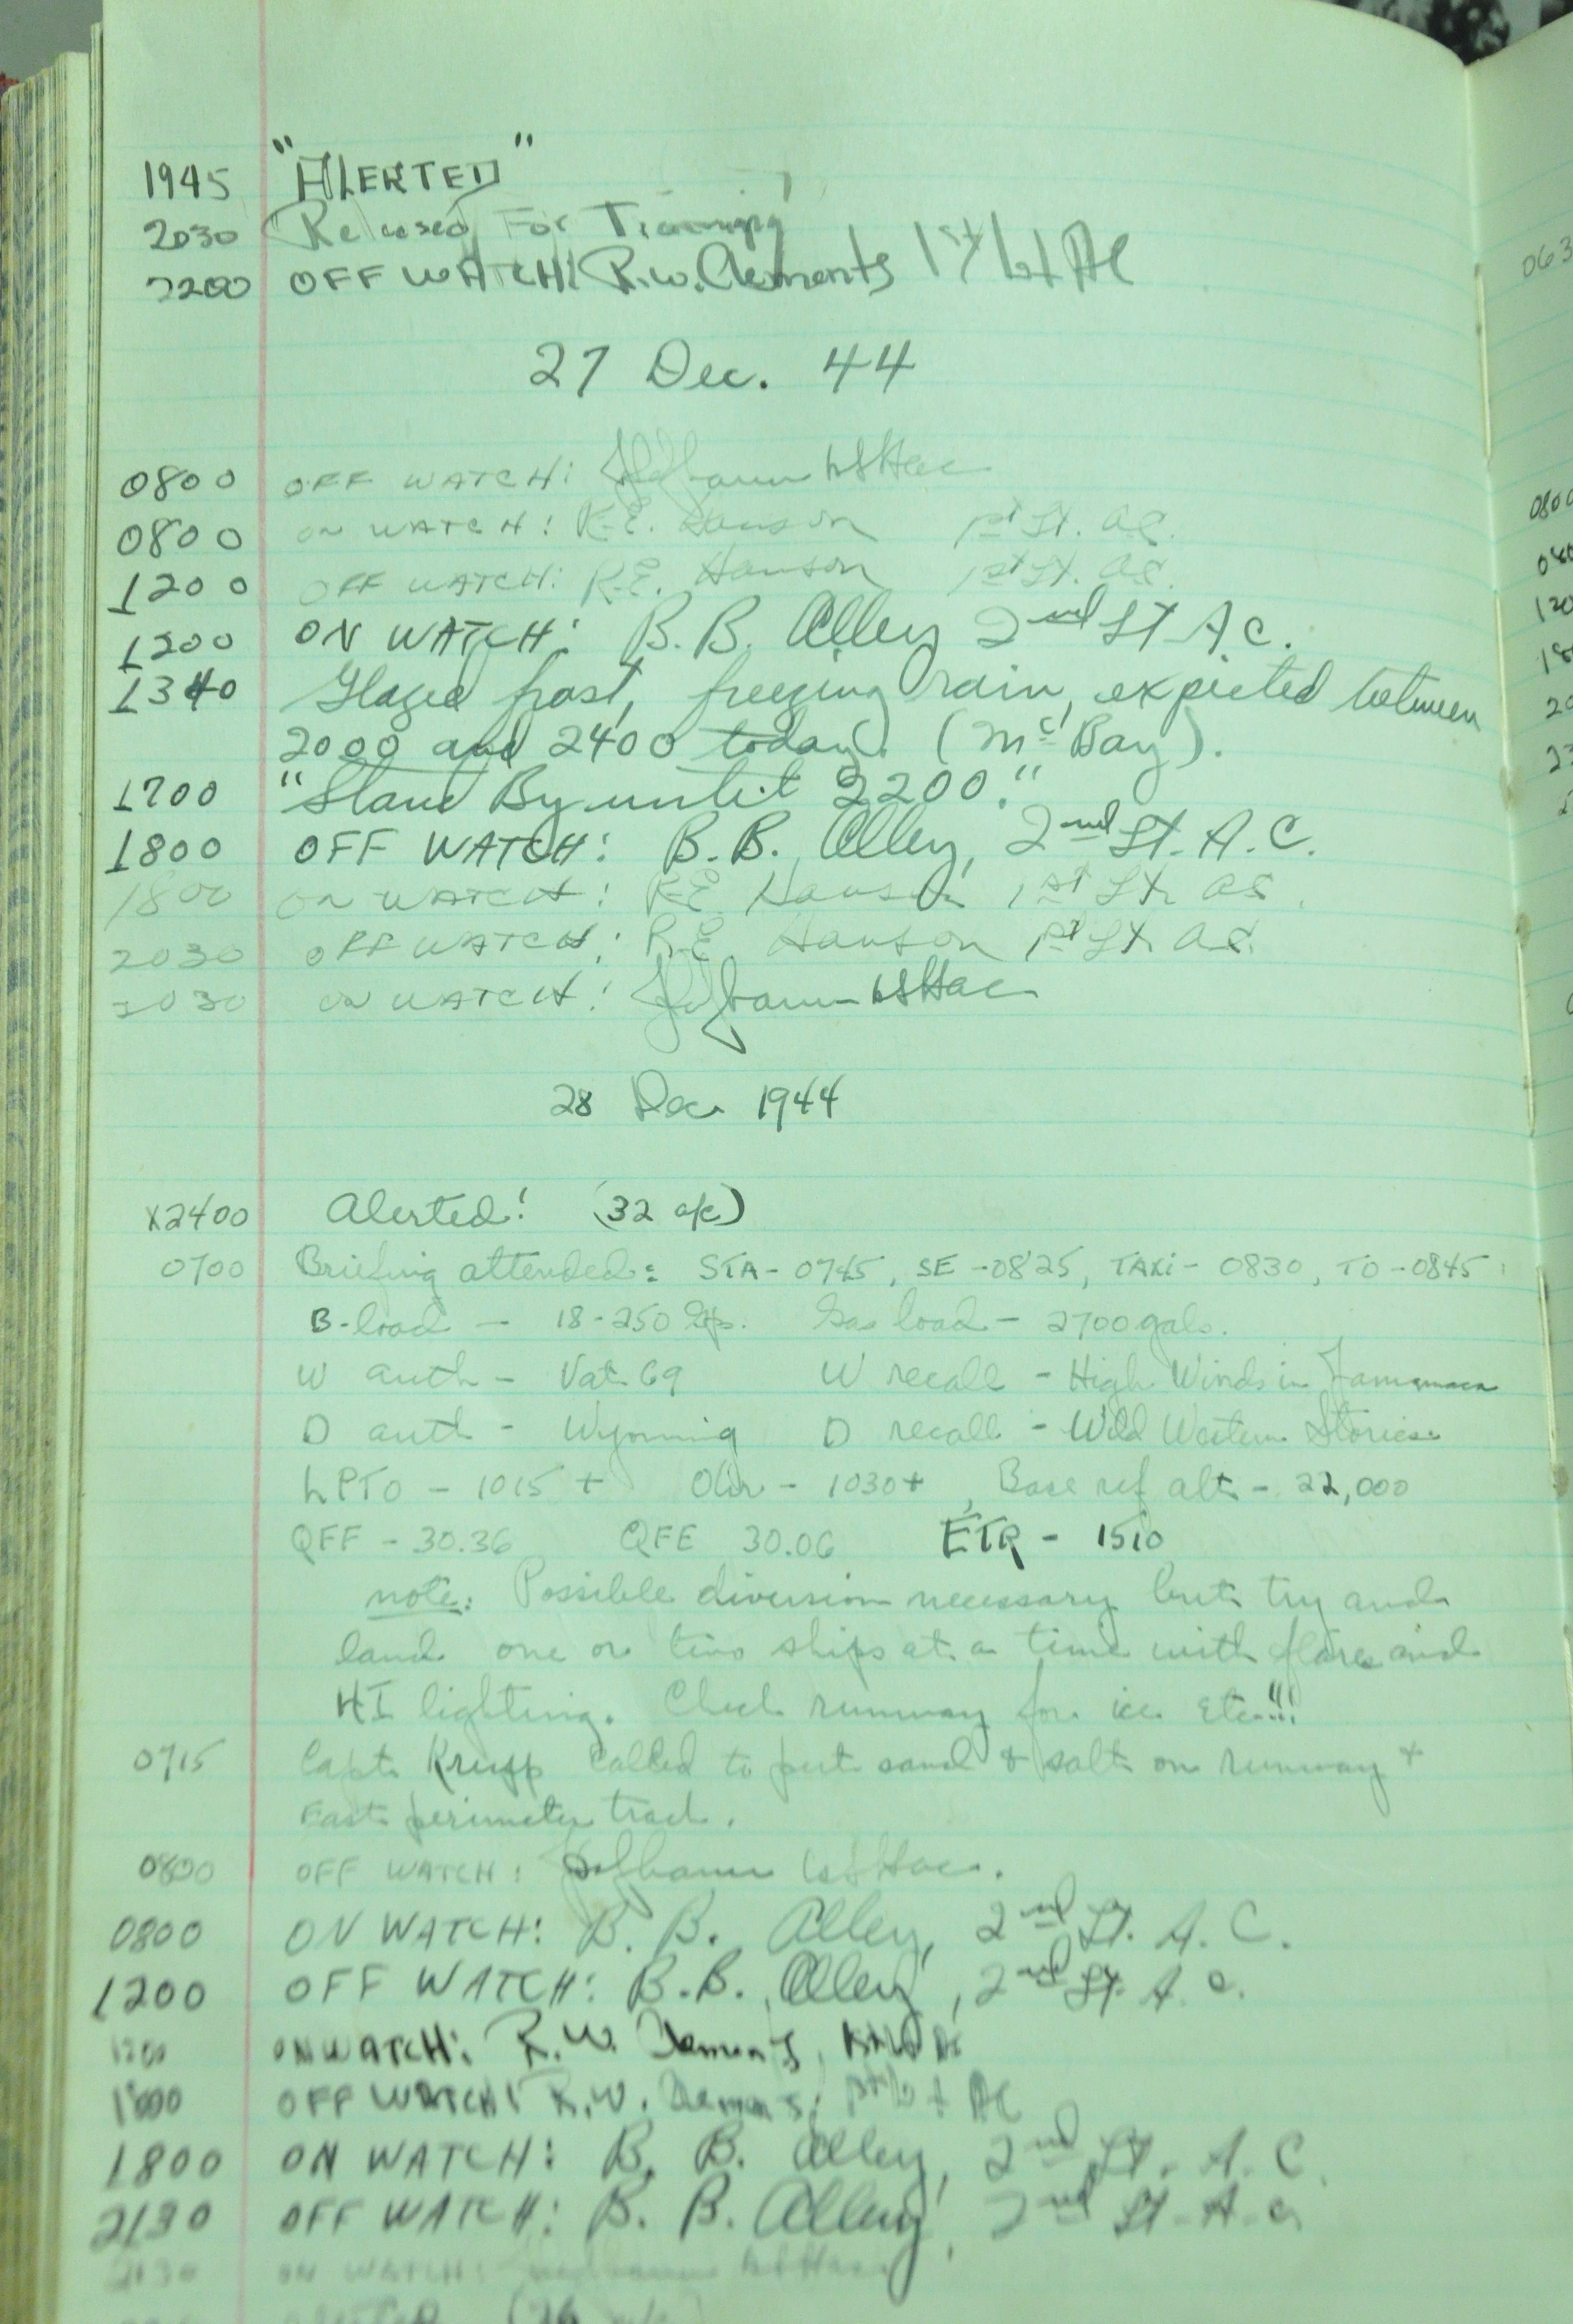 1945 "ALERTED"
2030 Released For Training
2200 OFF WATCH: R.W. Clements 1st Lt AC
27 Dec. 44
0800 OFF WATCH: 1st Lt ac
0800 ON WATCH: R.E. Hanson 1st Lt. AC.
1200 OFF WATCH: R.E. Hanson 1st Lt. AC.
1200 ON WATCH: B.B. Alley 2nd Lt A.C.
1340 Glazed frost, freezing rain, expected between
2000 and 2400 today. (Mc Bay).
1700 "Stand By until 2200."
1800 OFF WATCH: B.B. Alley, 2nd Lt. A.C.
1800 ON WATCH: R.E. Hanson 1st Lt. AC.
2030 OFF WATCH: R.E. Hanson 1st Lt. AC.
2030 ON WATCH: 1st Lt ac
28 Dec 1944
X2400 Alerted! (32 a/c)
0700 Briefing attended: STA-0745, SE-0825, TAXi-0830, TO-0845
B-load - 18-250 Gas load - 2700 gals.
W auth - Vat 69 W recall - High Winds in
D auth - Wyoming D recall - Wild Western Stories
LPTO - 1015+ - 1030+, Base ref alt - 22,000
QFF - 30.36 QFE 30.06 ETR - 1510
note: Possible diversion necessary but try and
land one or two ships at a time with flares and
HI lighting. Check runway for ice etc!!!
0715 Capt. Krupp called to put sand & salt on runway +
East perimeter track.
0800 OFF WATCH: 1st Lt ac.
0800 ON WATCH: B.B. Alley, 2nd Lt. A.C.
1200 OFF WATCH: B.B. Alley, 2nd Lt. A.C.
1200 ON WATCH: R.W. Clements, 1st Lt AC
1800 OFF WATCH: R.W. Clements, 1st Lt AC
1800 ON WATCH: B.B. Alley, 2nd Lt. A.C.
2130 OFF WATCH: B.B. Alley, 2nd Lt. A.C.
2130 ON WATCH: